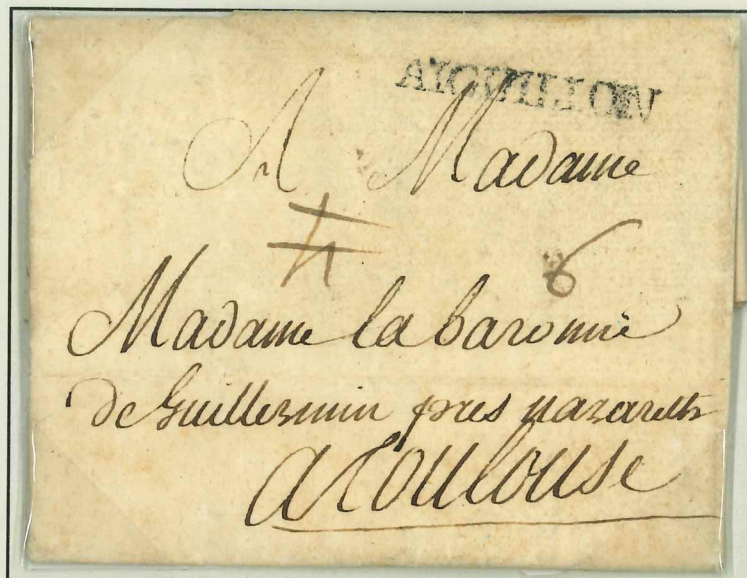 AIGUILLON
A Madame
4 6
Madame la baronne
de Guillermin pres nazareth
a Toulouse